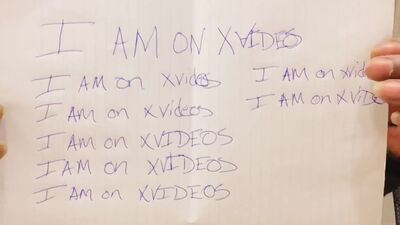 I AM ON XVIDEOS
I AM on Xvideos
I Am on Xvideos
I AM on XVIDEOS
IAM on XVIDEOS
I AM on XVIDEOS
I AM on Xvide
I AM on XViDe